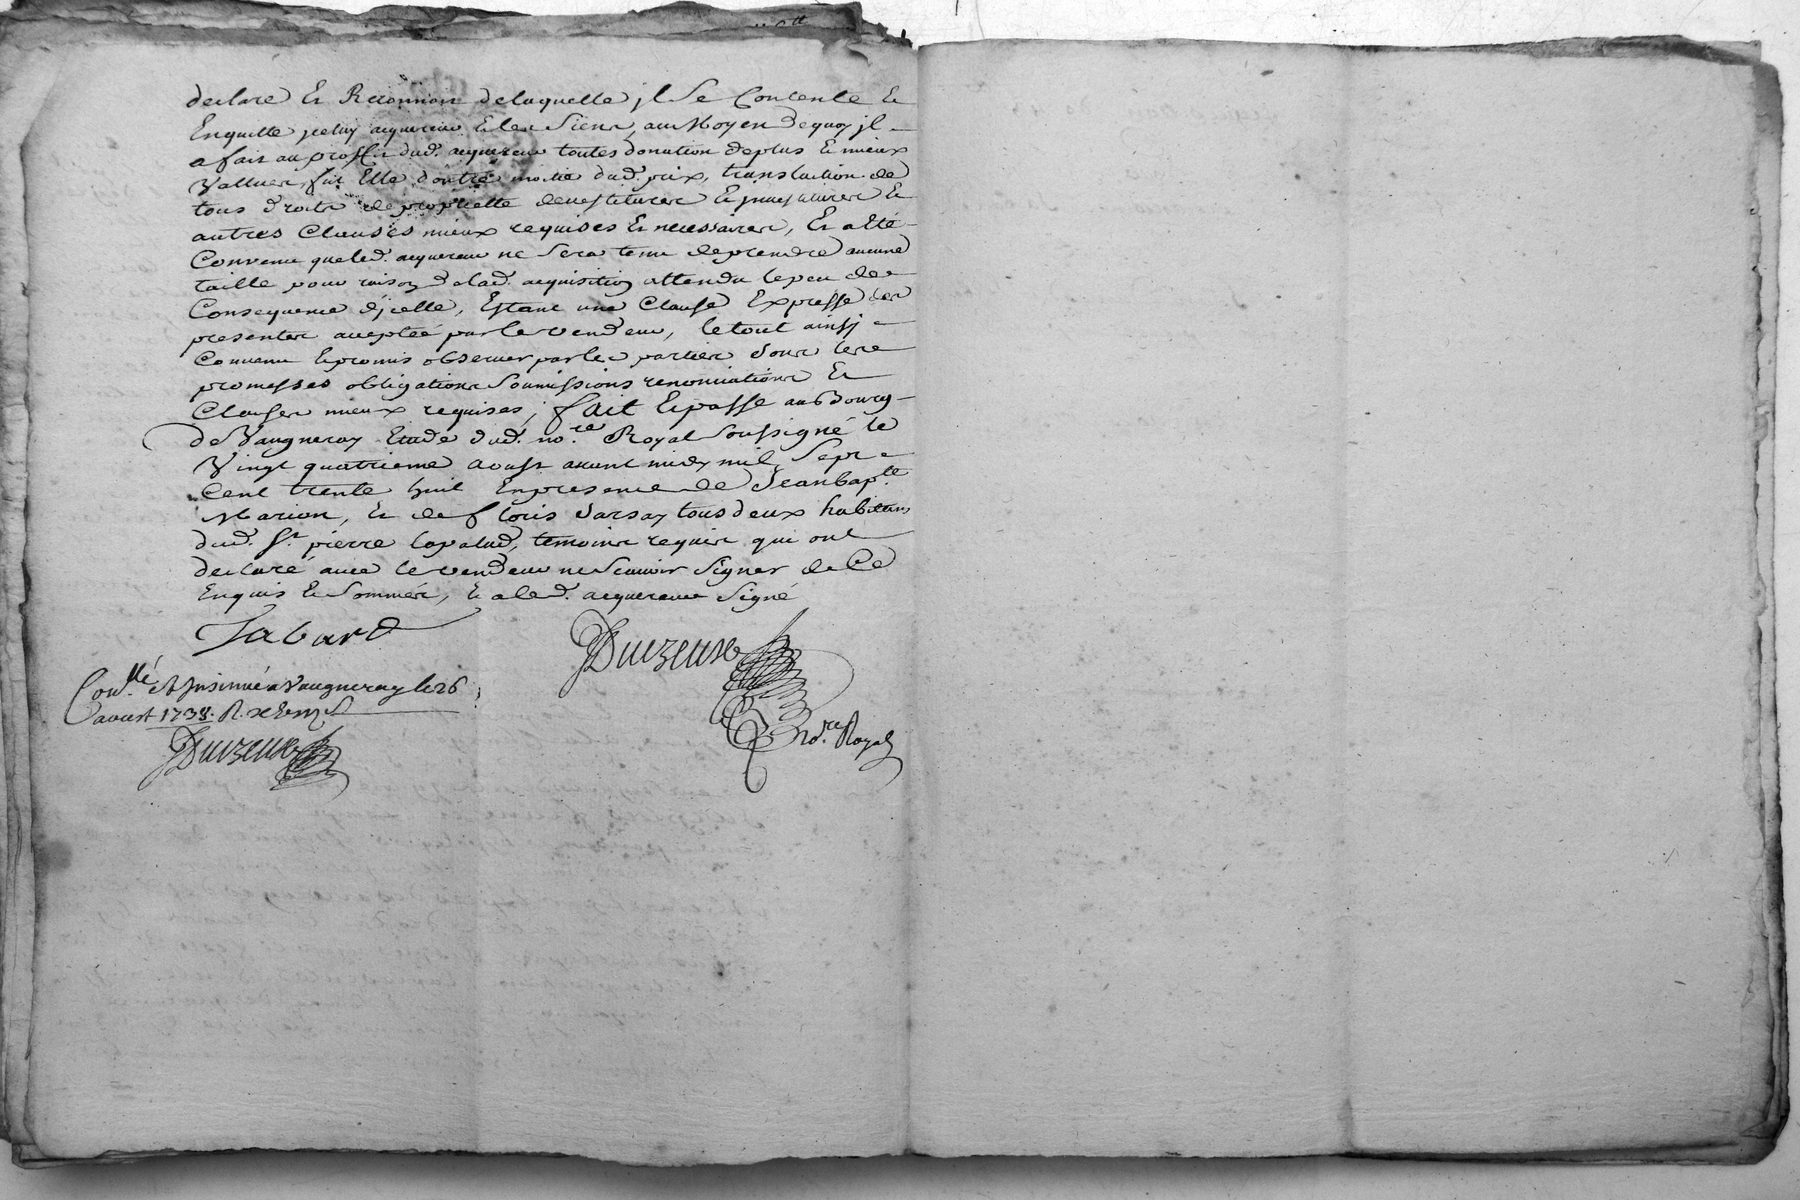 declare Et Reconnoit delaquelle jl Se Contente Et
Enquitte jceluy acquereur Et les Siens, au Moyen dequoy jl
a fait au proffit dud. acquereur toutes donation deplus Et mieux
Valluer, fut Elle d'outre moitié dud. prix, translation de
tous droits de proprietté devestitures Et jnvestitures Et
autres Clauses mieux requises Et necessaires, Et a Eté
Convenu que led. acquereur ne Sera tenu de prendre aucune
taille pour raison de lad. acquisition attendu le peu de
Consequence d'jcelle, Estant une Clause Expresse des
presentes acceptéé par le vendeur, le tout ainsj
Convenu Et promis observer par les parties sous leurs
promesses obligations Soumissions renonciations Et
Clauses mieux requises, fait Et passé au Bourg
de Vaugneray Etude dud. no.re Royal Soussigné le
Vingt quatrieme aoust avant midy mil Sept
Cent trente huit En presence de Jean bap.te
Marion, Et de floris Jarsay tous deux habitans
dud. St. pierre lapalud, temoins requis qui ont
declaré avec le vendeur ne Scavoir Signer de Ce
Enquis Et Sommés, Et a led. acquereur Signé
Jabard
Duczeuse
no.re Royal
Con.llé Et Jnsinué a Vaugneray le 26
aoust 1738. R.
Duczeuse